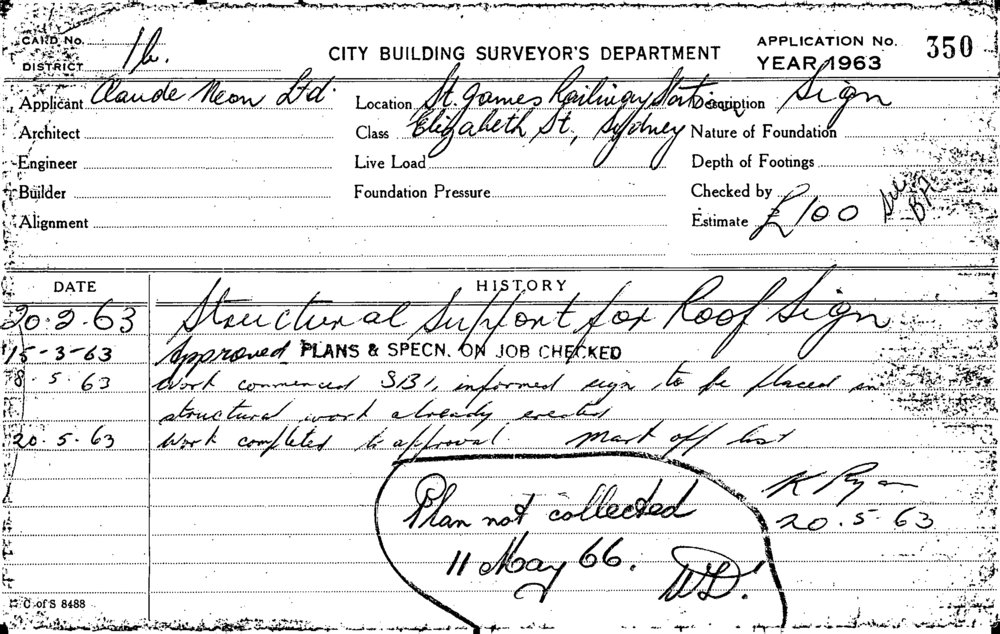 CARD No. 1b.
DISTRICT
CITY BUILDING SURVEYOR'S DEPARTMENT
APPLICATION No. 350
YEAR 1963
Applicant Claude Neon Ltd. Location St. James Railway Station Description Sign
Architect Class Elizabeth St., Sydney Nature of Foundation
Engineer Live Load Depth of Footings
Builder Foundation Pressure Checked by
Alignment Estimate £100
DATE HISTORY
20.2.63 Structural Support for Roof Sign
15-3-63 Approved PLANS & SPECN. ON JOB CHECKED
8.5.63 Work commenced SB1, informed sign to be placed in
structural work already erected
20.5.63 Work completed to approval. Mark off list
K Ryan
20.5.63
Plan not collected
11 May 66.
C of S 8488